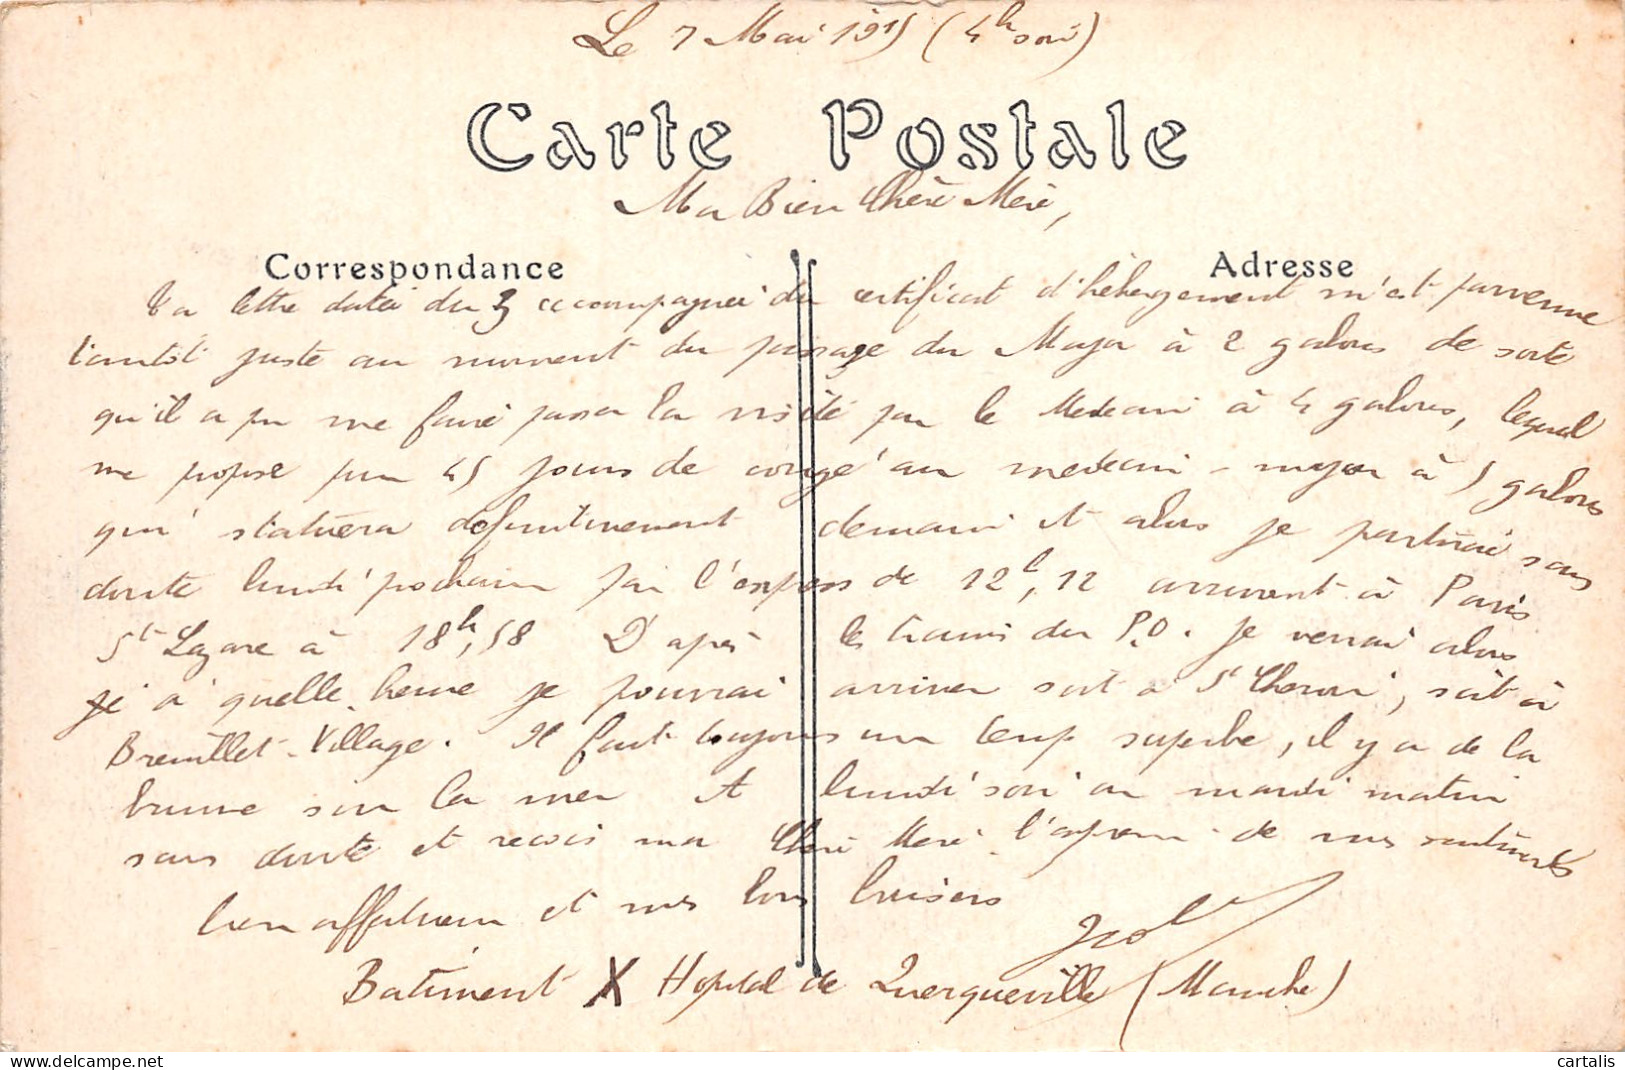 Le 7 Mai 1915 (4h soir)
Carte Postale
Ma Bien Chère Mère,
Correspondance
Adresse
Ta lettre datée du 3 accompagnée du certificat d'hébergement m'est parvenue
tantôt juste au moment du passage du Major à 2 galons de sorte
qu'il a pu me faire passer la visite par le Médecin à 4 galons, lequel
me propose pour 45 jours de congé au médecin-major à 5 galons
qui statuera définitivement demain et alors je partirai sans
doute lundi prochain par l'express de 12h,12 arrivant à Paris
St Lazare à 18h,58 D'après les trains du P.O. je verrai alors
à quelle heure je pourrai arriver soit à St Cheron, soit à
Breuillet-Village. Il fait toujours un temps superbe, il y a de la
brume sur la mer A lundi soir ou mardi matin
sans doute et reçois ma Chère Mère l'expression de mes sentiments
bien affectueux et mes bons baisers
Batiment X Hopital de Querqueville (Manche)
cartalis